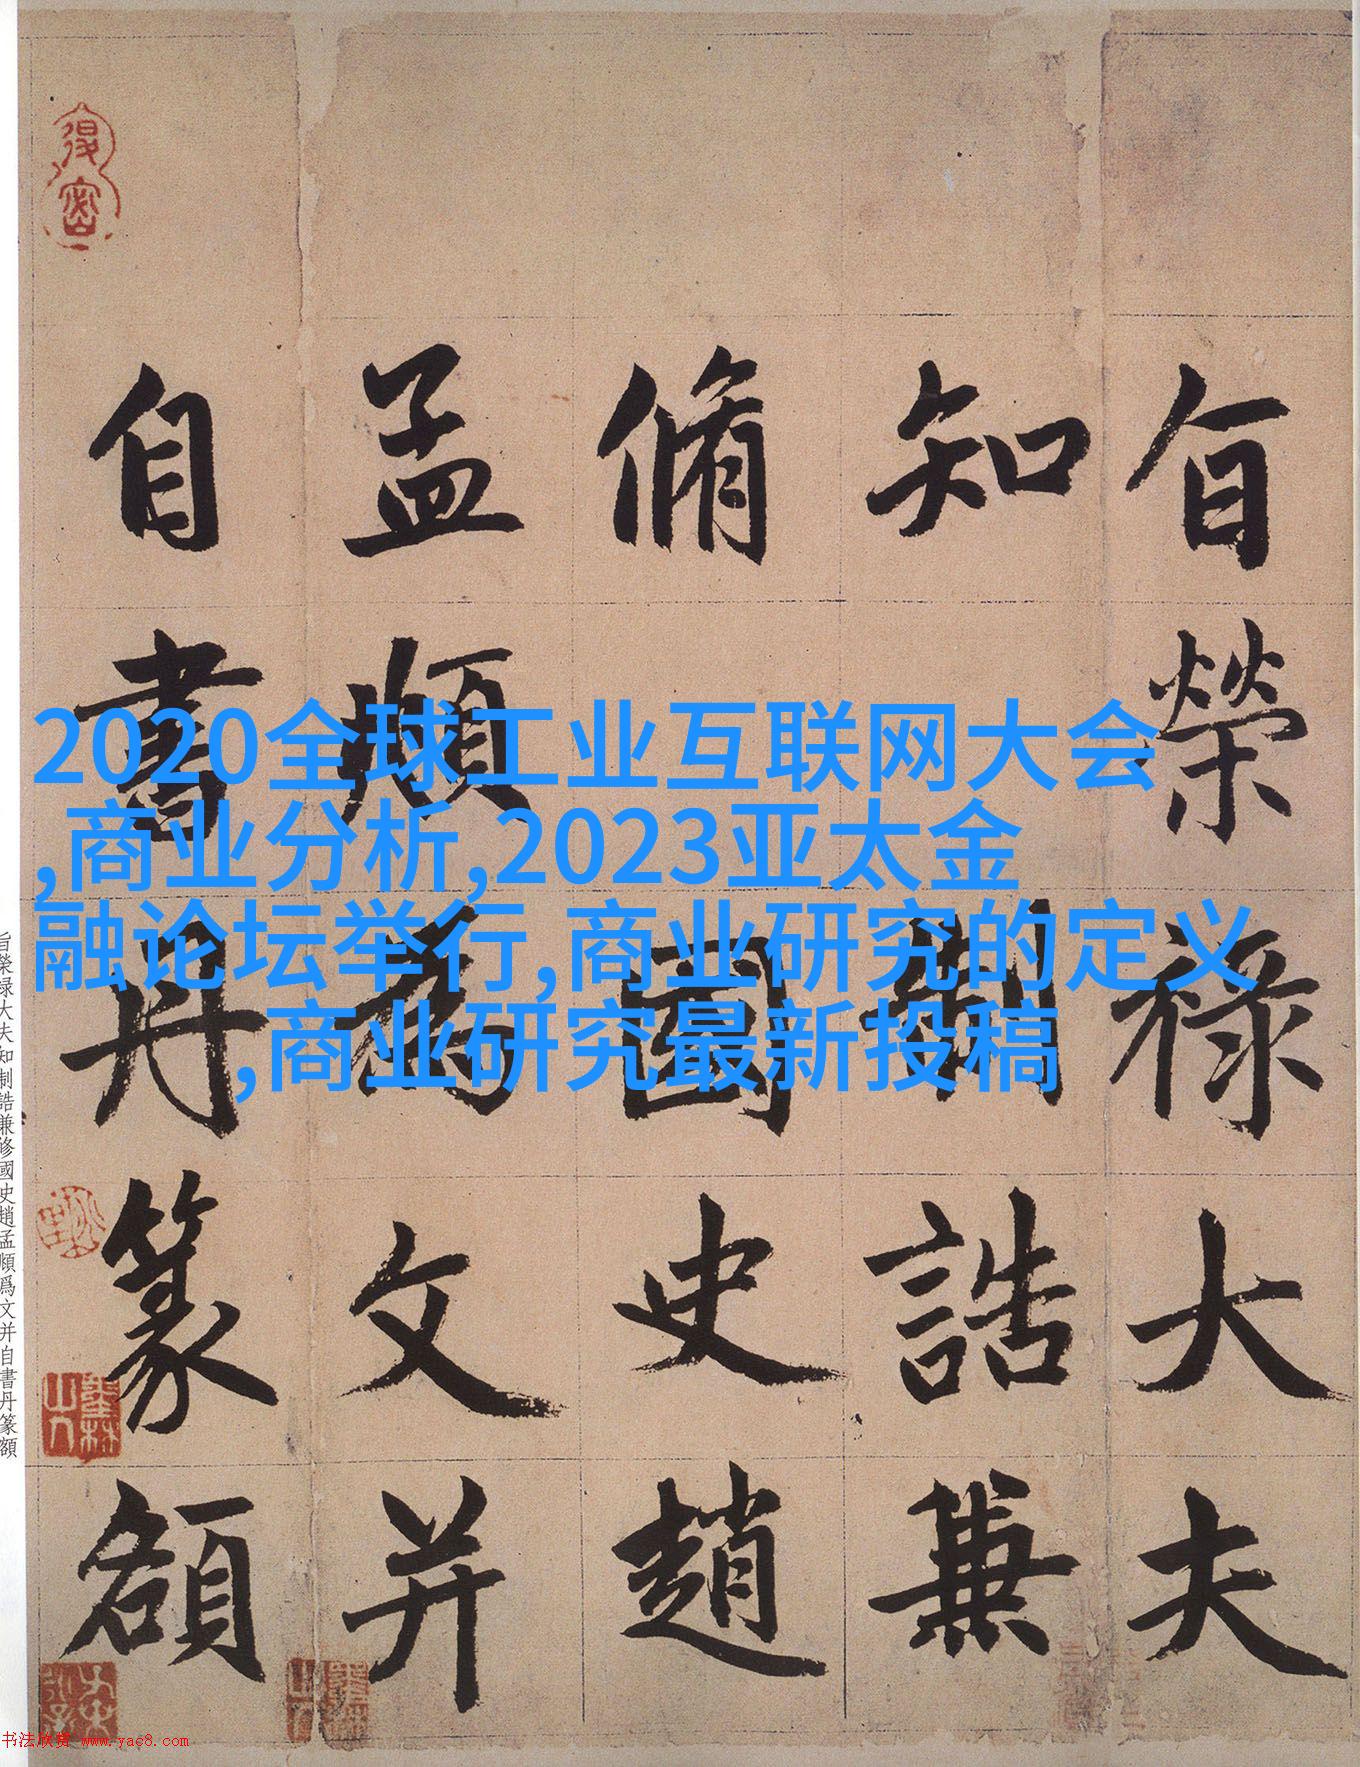 旨榮祿大夫
知制誥兼
脩國史趙
孟頫為文并
自書丹篆額
2020全球工业互联网大会
,商业分析,2023亚太金
融论坛举行,商业研究的定义
,商业研究最新投稿
旨榮禄大夫知制誥兼修國史趙孟頫爲文并自書丹篆額
书法欣赏 www.yac8.com